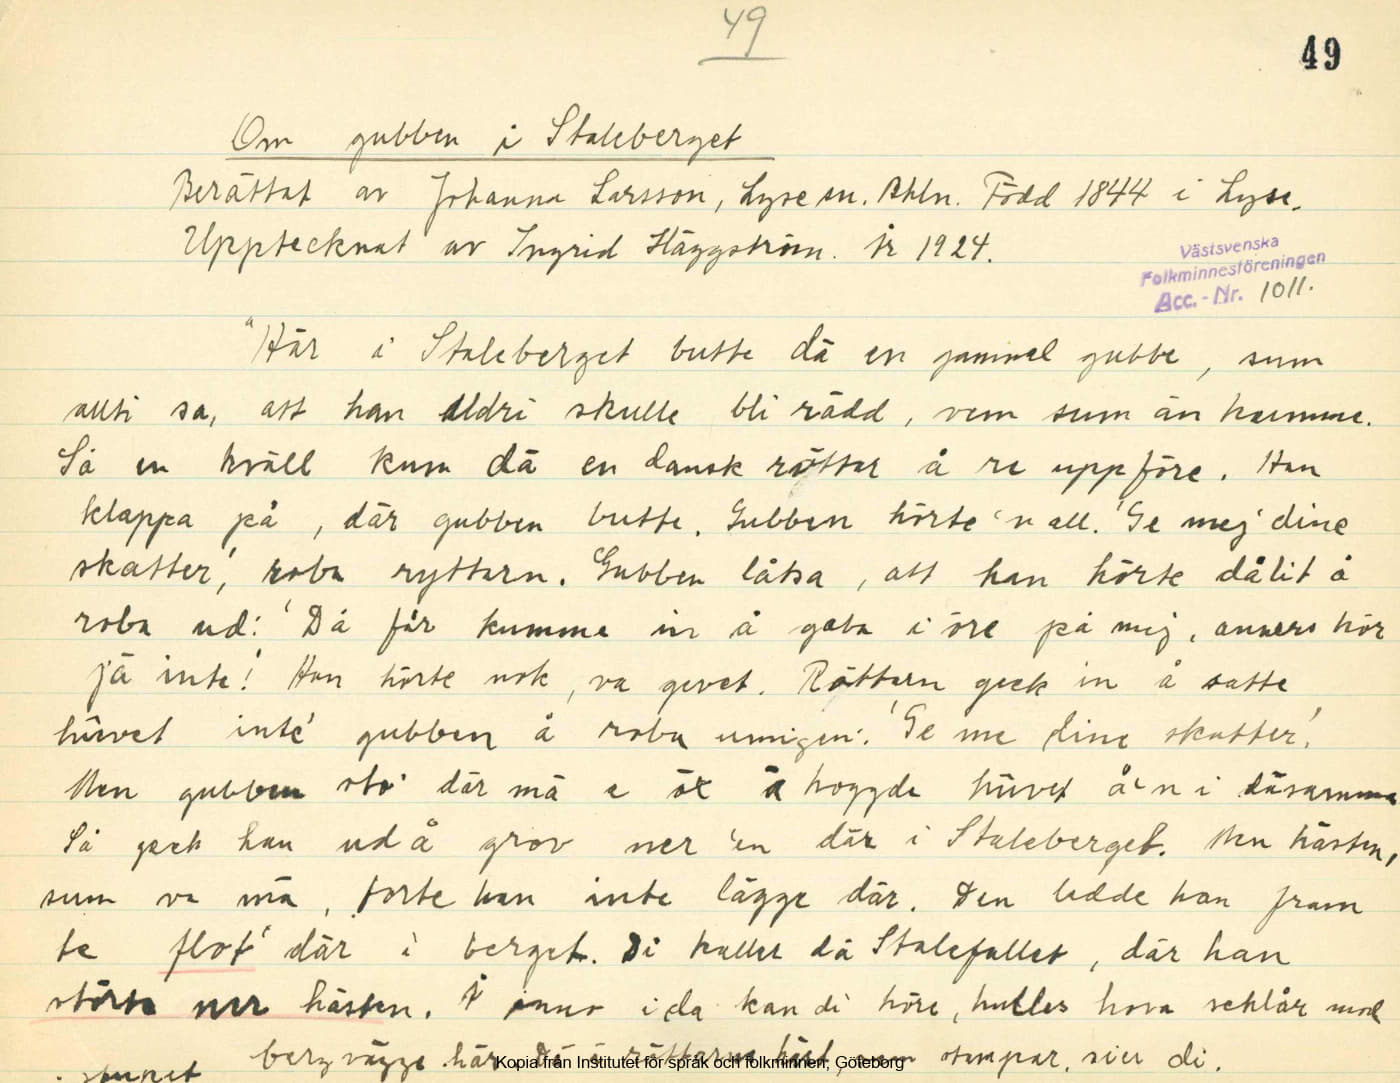 49
49
Om gubben i Staleberget
Berättat av Johanna Larsson, Lyse sn. Bhln. Född 1844 i Lyse.
Upptecknat av Ingrid Häggström. År 1924.
Västsvenska
Folkminnesföreningen
Acc.-Nr. 1011.
"Här i Staleberget butte dä en gammel gubbe, sum
allti sa, att han aldri skulle bli rädd, vem sum än kumme.
Så en kväll kum dä en dansk röttar å re uppföre. Han
klappa på, där gubben butte. Gubben hörte 'n all. 'Ge mej dine
skatter', roba ryttarn. Gubben låtsa, att han hörte dålit å
roba ud: 'Då får kumme in å gaba i öre på mej, anners hör
jä inte!' Han hörte nok, va gevet. Röttarn geck in å satte
hüvet inte' gubben å roba umigen: 'Ge me dine skatter'.
Men gubben sto' där mä e öx å hoggde hüvet å 'n i däsamma
Så geck han ud å grov ner 'en där i Staleberget. Men hästen,
sum va mä, torte han inte lägge där. Den ledde han fram
te flot' där i berget. Di kaller dä Stalefallet, där han
störta ner hästen. Å änno ida kan di höre, hulles hova seklår mod
berzvägge här. Dä ä röttarns häst, sum stampar, sier di.
Kopia från Institutet för språk och folkminnen, Göteborg